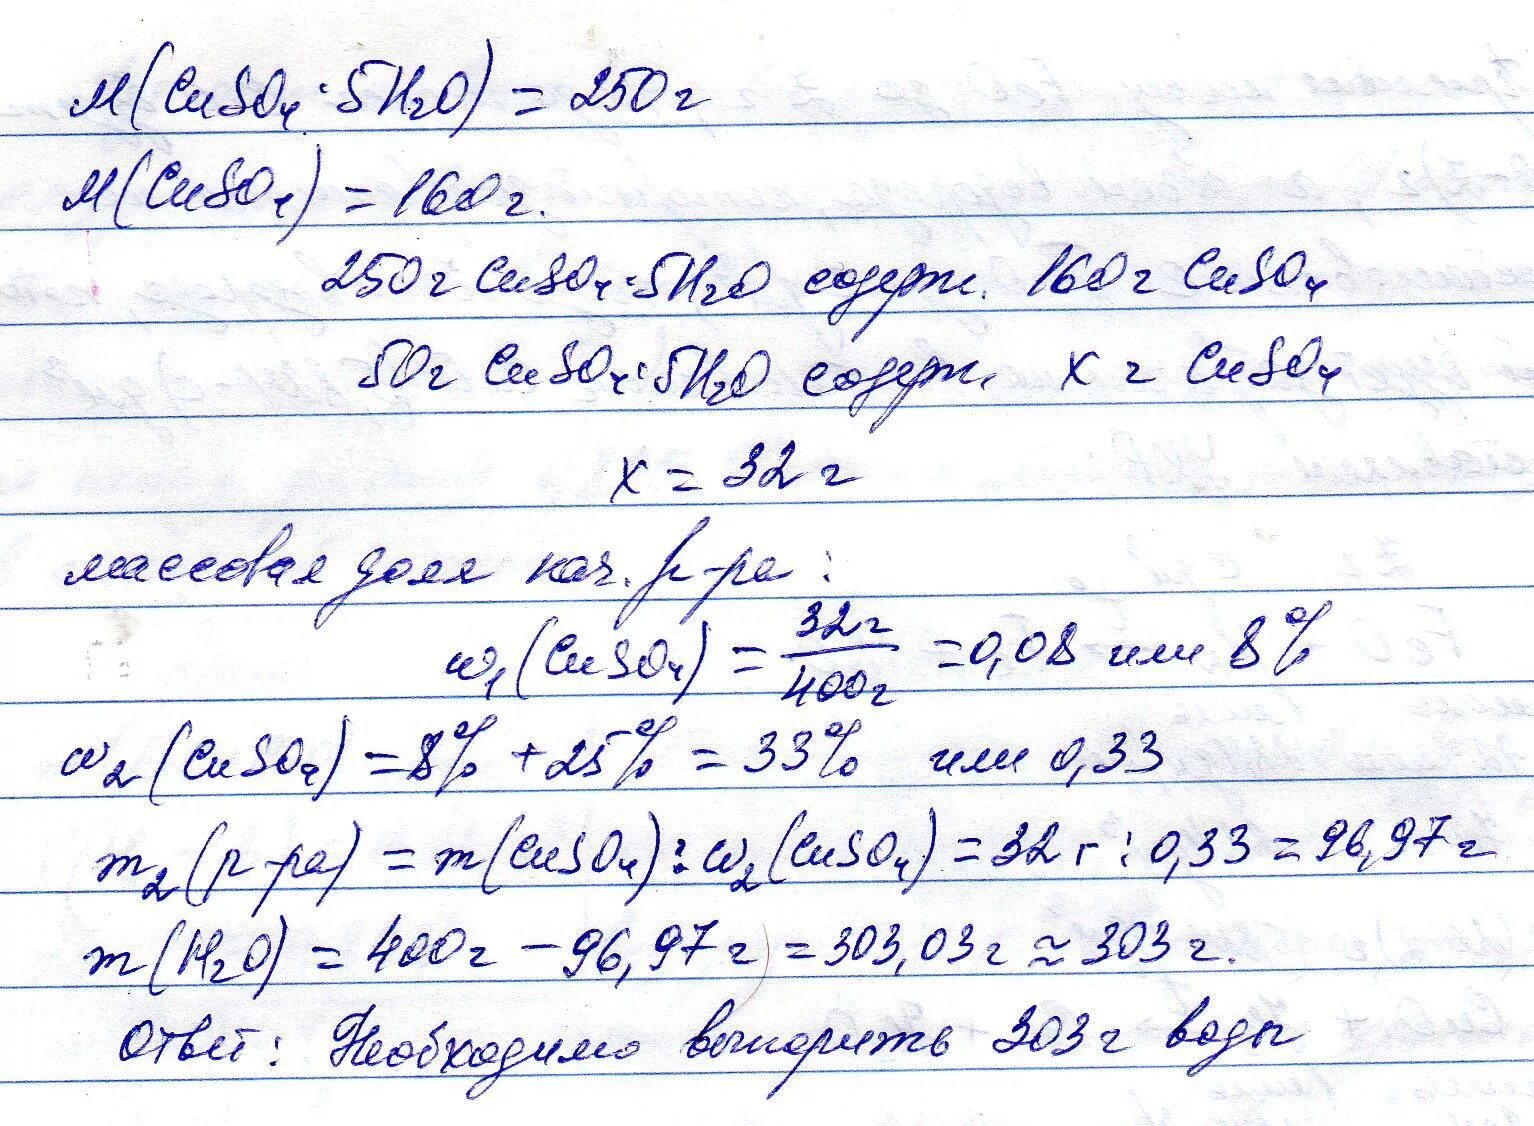 M(CuSO₄·5H₂O) = 250г
M(CuSO₄) = 160г.
250г CuSO₄·5H₂O содерж. 160г CuSO₄
50г CuSO₄·5H₂O содерж. x г CuSO₄
x = 32г
массовая доля нач. р-ра:
w₁(CuSO₄) = 32г/400г = 0,08 или 8%
w₂(CuSO₄) = 8% + 25% = 33% или 0,33
m₂(р-ра) = m(CuSO₄) : w₂(CuSO₄) = 32г : 0,33 = 96,97г
m(H₂O) = 400г – 96,97г = 303,03г ≈ 303г.
Ответ: Необходимо выпарить 303г воды